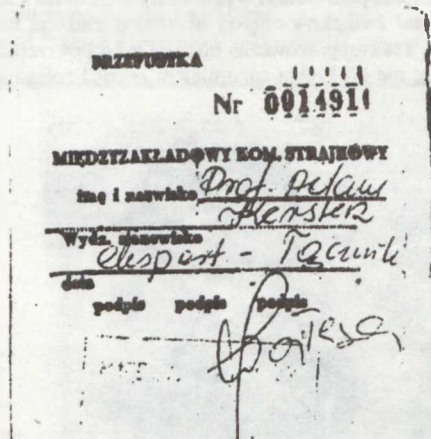 PRZEPUSTKA
Nr 0014911
MIĘDZYZAKŁADOWY KOM. STRAJKOWY
Imę i nazwisko Prof. Adam
Kersten
Wydz. stanowisko
ekspert - Łącznik
data
podpis podpis podpis